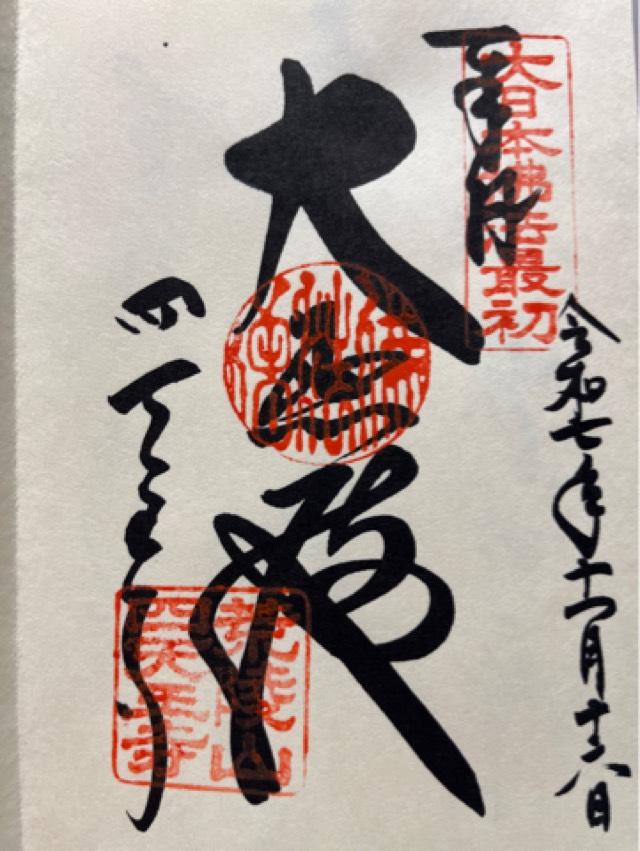 奉拝
大日本佛法最初
令和七年十一月十六日
大悲殿
四天王寺
荒陵山
四天王寺